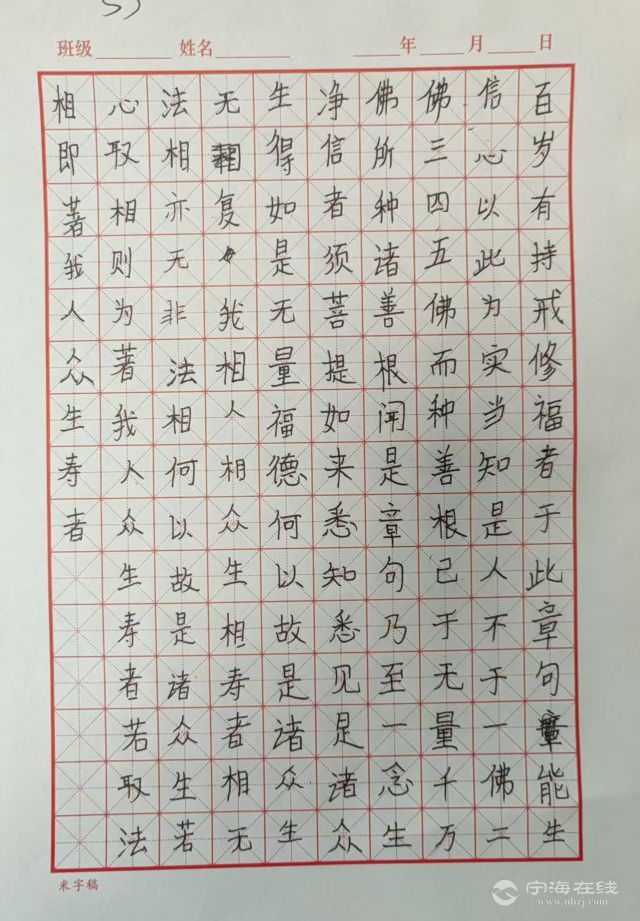 班级 姓名 年 月 日
百岁有持戒修福者于此章句能生
信心以此为实当知是人不于一佛二
佛三四五佛而种善根已于无量千万
佛所种诸善根闻是章句乃至一念生
净信者须菩提如来悉知悉见是诸众
生得如是无量福德何以故是诸众生
无复我相人相众生相寿者相无
法相亦无非法相何以故是诸众生若
心取相则为著我人众生寿者若取法
相即著我人众生寿者
米字稿
宁海在线
www.nhzj.com